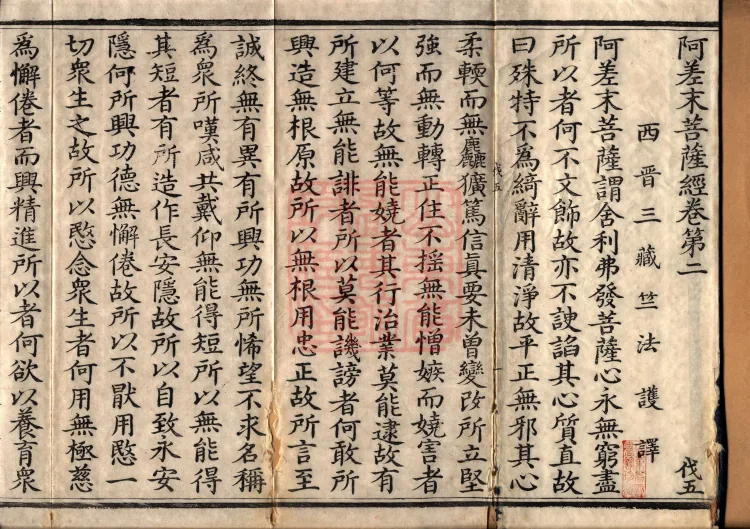 阿差末菩薩經卷第二
伐五
西晋三藏竺法護譯
阿差末菩薩謂舍利弗發菩薩心永無窮盡
所以者何不文飾故亦不諛諂其心質直故
曰殊特不爲綺辭用清淨故平正無邪其心
伐五
柔軟而無麤獷篤信眞要未曾變改所立堅
強而無動轉正住不揺無能憎嫉而嬈害者
以何等故無能嬈者其行治業莫能逮故有
所建立無能誹者所以莫能譏謗者何敢所
興造無根原故所以無根用忠正故所言至
誠終無有異有所興功無所悕望不求名稱
爲衆所嘆咸共戴仰無能得短所以無能得
其短者有所造作長安隱故所以自致永安
隱何所興功德無懈倦故所以不猒用愍一
切衆生之故所以愍念衆生者何用無極慈
爲懈倦者而興精進所以者何欲以養育衆